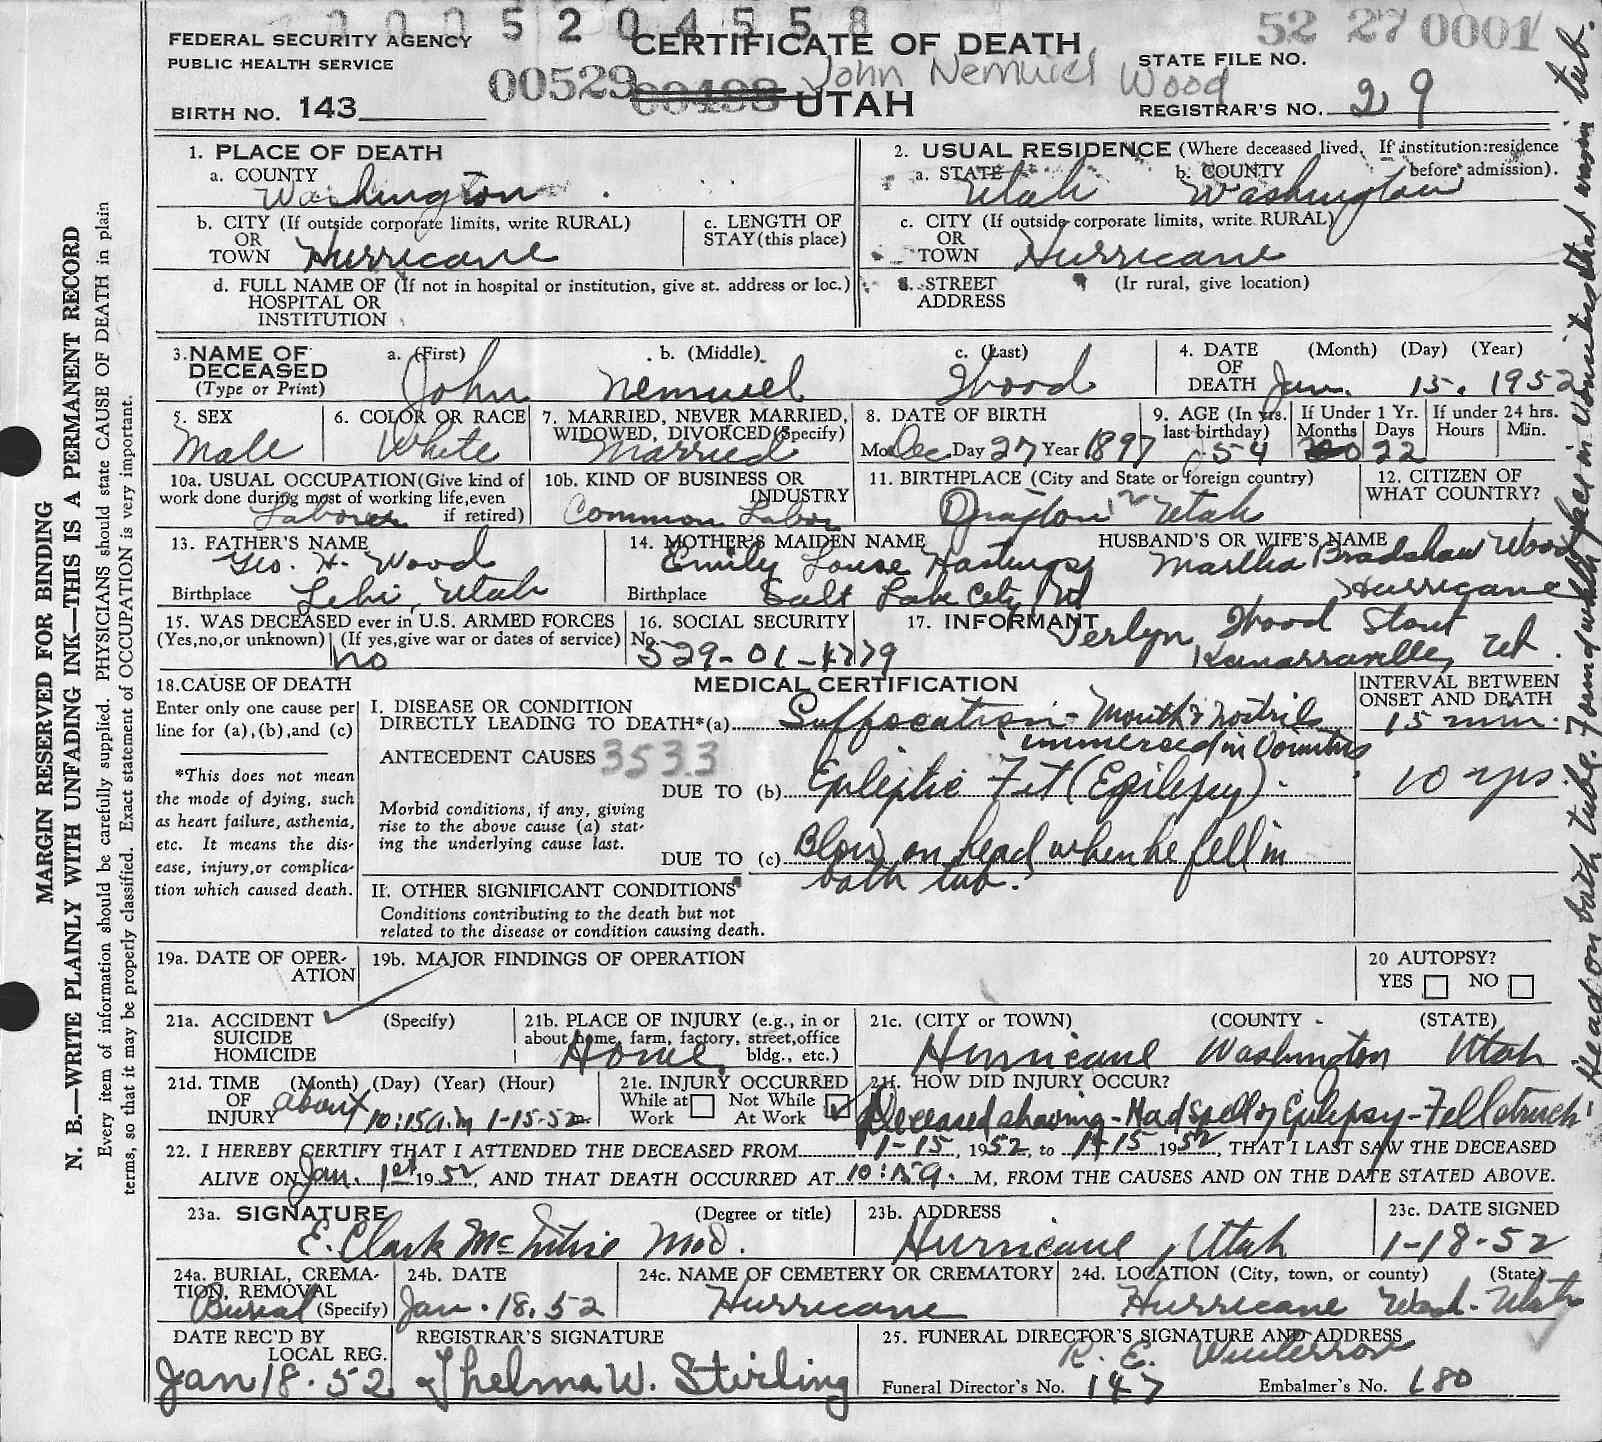 0005204558
52 27 0001
FEDERAL SECURITY AGENCY
PUBLIC HEALTH SERVICE
CERTIFICATE OF DEATH
STATE FILE NO.
00529 00488 UTAH
John Nemuel Wood
BIRTH NO. 143
REGISTRAR'S NO. 29
1. PLACE OF DEATH
a. COUNTY
Washington
2. USUAL RESIDENCE (Where deceased lived. If institution: residence before admission).
a. STATE Utah b. COUNTY Washington
b. CITY (If outside corporate limits, write RURAL) OR TOWN Hurricane
c. LENGTH OF STAY (this place)
c. CITY (If outside corporate limits, write RURAL) OR TOWN Hurricane
d. FULL NAME OF (If not in hospital or institution, give st. address or loc.) HOSPITAL OR INSTITUTION
d. STREET ADDRESS (Ir rural, give location)
3. NAME OF DECEASED (Type or Print)
a. (First) John b. (Middle) Nemuel c. (Last) Wood
4. DATE OF DEATH (Month) (Day) (Year) Jan. 15. 1952
5. SEX Male
6. COLOR OR RACE White
7. MARRIED, NEVER MARRIED, WIDOWED, DIVORCED (Specify) Married
8. DATE OF BIRTH Mo Dec Day 27 Year 1897
9. AGE (In yrs. last birthday) 54
If Under 1 Yr. Months 0 Days 22
If under 24 hrs. Hours Min.
10a. USUAL OCCUPATION (Give kind of work done during most of working life, even if retired) Laborer
10b. KIND OF BUSINESS OR INDUSTRY Common Labor
11. BIRTHPLACE (City and State or foreign country) Utah
12. CITIZEN OF WHAT COUNTRY?
13. FATHER'S NAME Geo. H. Wood
Birthplace Lehi, Utah
14. MOTHER'S MAIDEN NAME Emily Louise Hastings
Birthplace Salt Lake City Ut
HUSBAND'S OR WIFE'S NAME Martha Bradshaw Wood Hurricane
15. WAS DECEASED ever in U.S. ARMED FORCES (Yes, no, or unknown) (If yes, give war or dates of service) no
16. SOCIAL SECURITY No. 529-01-4779
17. INFORMANT Verlyn Wood Stout
Kanarraville, Ut.
18. CAUSE OF DEATH
Enter only one cause per line for (a), (b), and (c)
*This does not mean the mode of dying, such as heart failure, asthenia, etc. It means the disease, injury, or complication which caused death.
MEDICAL CERTIFICATION
INTERVAL BETWEEN ONSET AND DEATH
I. DISEASE OR CONDITION DIRECTLY LEADING TO DEATH*(a) Suffocation - Mouth & nostrils immersed in Vomitus
15 min.
ANTECEDENT CAUSES 3533
Morbid conditions, if any, giving rise to the above cause (a) stating the underlying cause last.
DUE TO (b) Epileptic Fit (Epilepsy).
10 yrs
DUE TO (c) Blow on head when he fell in bath tub.
II. OTHER SIGNIFICANT CONDITIONS
Conditions contributing to the death but not related to the disease or condition causing death.
19a. DATE OF OPERATION
19b. MAJOR FINDINGS OF OPERATION
20 AUTOPSY? YES NO
21a. ACCIDENT (Specify) SUICIDE HOMICIDE
21b. PLACE OF INJURY (e.g., in or about home, farm, factory, street, office bldg., etc.) Home
21c. (CITY or TOWN) (COUNTY (STATE)
Hurricane Washington Utah
21d. TIME OF INJURY (Month) (Day) (Year) (Hour) about 10:15 a.m 1-15-52
21e. INJURY OCCURRED While at Work Not While At Work
21f. HOW DID INJURY OCCUR?
Deceased shaving - Had spell of Epilepsy - Fell struck
Head on bath tube. Found with face in Vomitus that was in tub.
22. I HEREBY CERTIFY THAT I ATTENDED THE DECEASED FROM 1-15, 1952, to 1-15 1952, THAT I LAST SAW THE DECEASED
ALIVE ON Jan. 1st 1952, AND THAT DEATH OCCURRED AT 10:15 a. M, FROM THE CAUSES AND ON THE DATE STATED ABOVE.
23a. SIGNATURE (Degree or title)
E. Clark McIntire M.D.
23b. ADDRESS Hurricane, Utah
23c. DATE SIGNED 1-18-52
24a. BURIAL, CREMATION, REMOVAL (Specify) Burial
24b. DATE Jan. 18, 52
24c. NAME OF CEMETERY OR CREMATORY Hurricane
24d. LOCATION (City, town, or county) (State) Hurricane Wash. Utah
DATE REC'D BY LOCAL REG. Jan 18. 52
REGISTRAR'S SIGNATURE Thelma W. Stirling
25. FUNERAL DIRECTOR'S SIGNATURE AND ADDRESS
R. E.
Funeral Director's No. 147 Embalmer's No. 180
MARGIN RESERVED FOR BINDING
N. B.—WRITE PLAINLY WITH UNFADING INK—THIS IS A PERMANENT RECORD
Every item of information should be carefully supplied. PHYSICIANS should state CAUSE OF DEATH in plain
terms, so that it may be properly classified. Exact statement of OCCUPATION is very important.